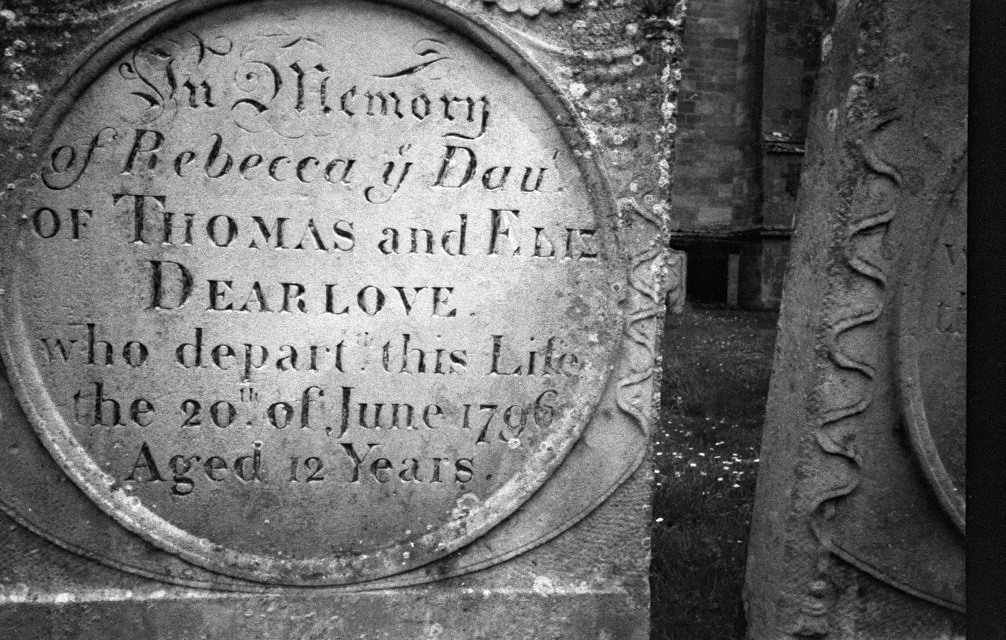 In Memory
of Rebecca yͤ Dauʳ.
OF THOMAS and ELIZ
DEARLOVE.
who departᵈ this Life
the 20ᵗʰ. of June 1796
Aged 12 Years.